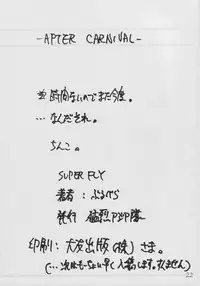 -AFTER CARNIVAL-
時間ないのでまた今度。
…なんだそれ。
ちんこ。
SUPER FLY
著者:ぶるけら
発行 猛烈P3印隊
印刷:大友出版(株)さま。
(…次はもーちょい早く入稿します。すみません)
22